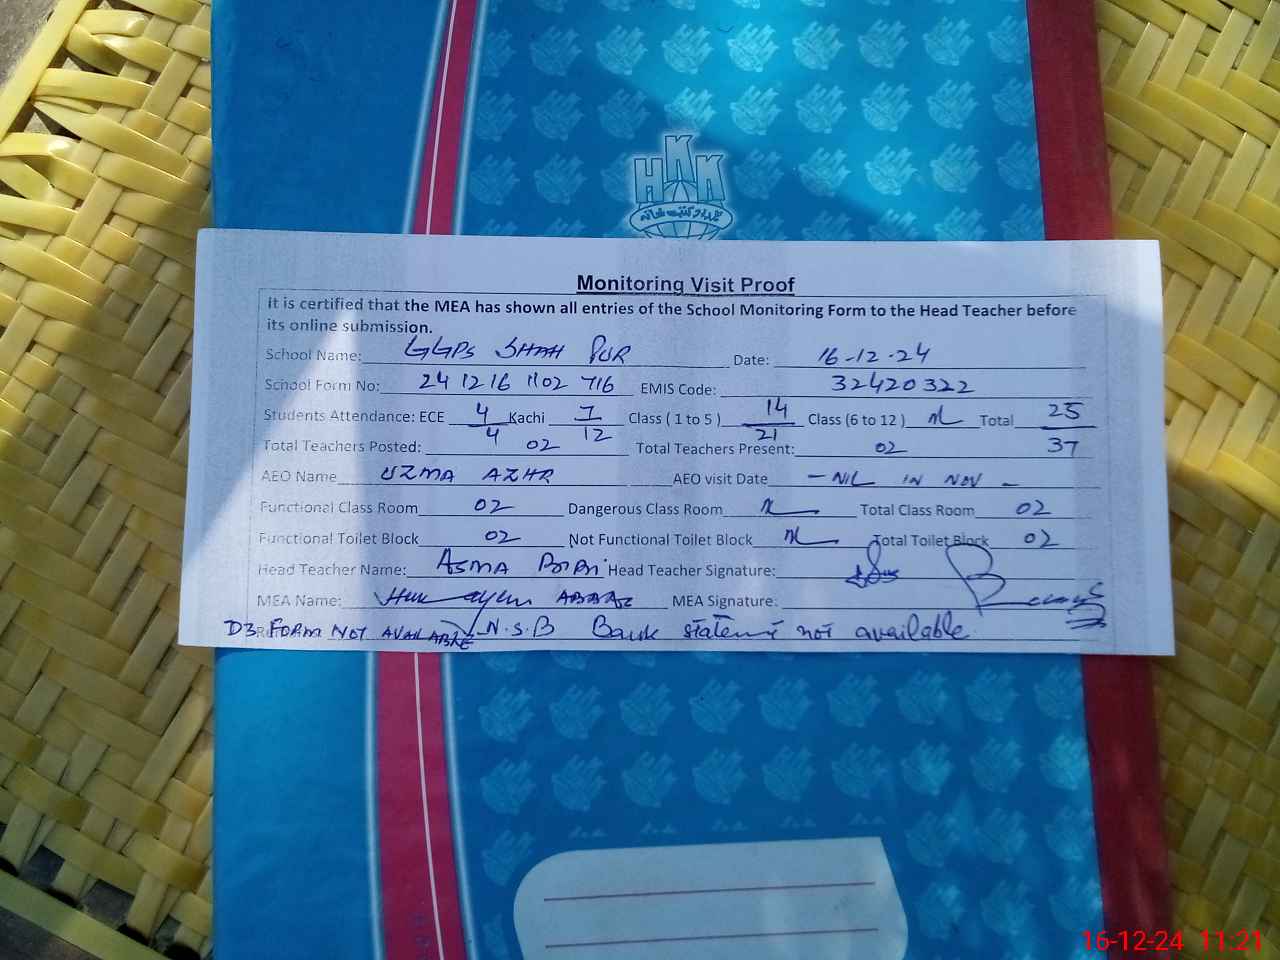 HKK
Monitoring Visit Proof
It is certified that the MEA has shown all entries of the School Monitoring Form to the Head Teacher before
its online submission.
School Name: GGPS SHAH PUR Date: 16-12-24
School Form No: 24 12 16 1102 716 EMIS Code: 32420322
Students Attendance: ECE 4/4 Kachi 7/12 Class ( 1 to 5 ) 14/21 Class (6 to 12 ) Total 25/37
Total Teachers Posted: 02 Total Teachers Present: 02
AEO Name UZMA AZHR AEO visit Date - NIL IN NOV -
Functional Class Room 02 Dangerous Class Room Total Class Room 02
Functional Toilet Block 02 Not Functional Toilet Block Total Toilet Block 02
Head Teacher Name: ASMA BIBI Head Teacher Signature:
MEA Name: ABBAS MEA Signature:
D3 FORM NOT AVAILABLE N.S.B Bank statement not available
16-12-24 11:21